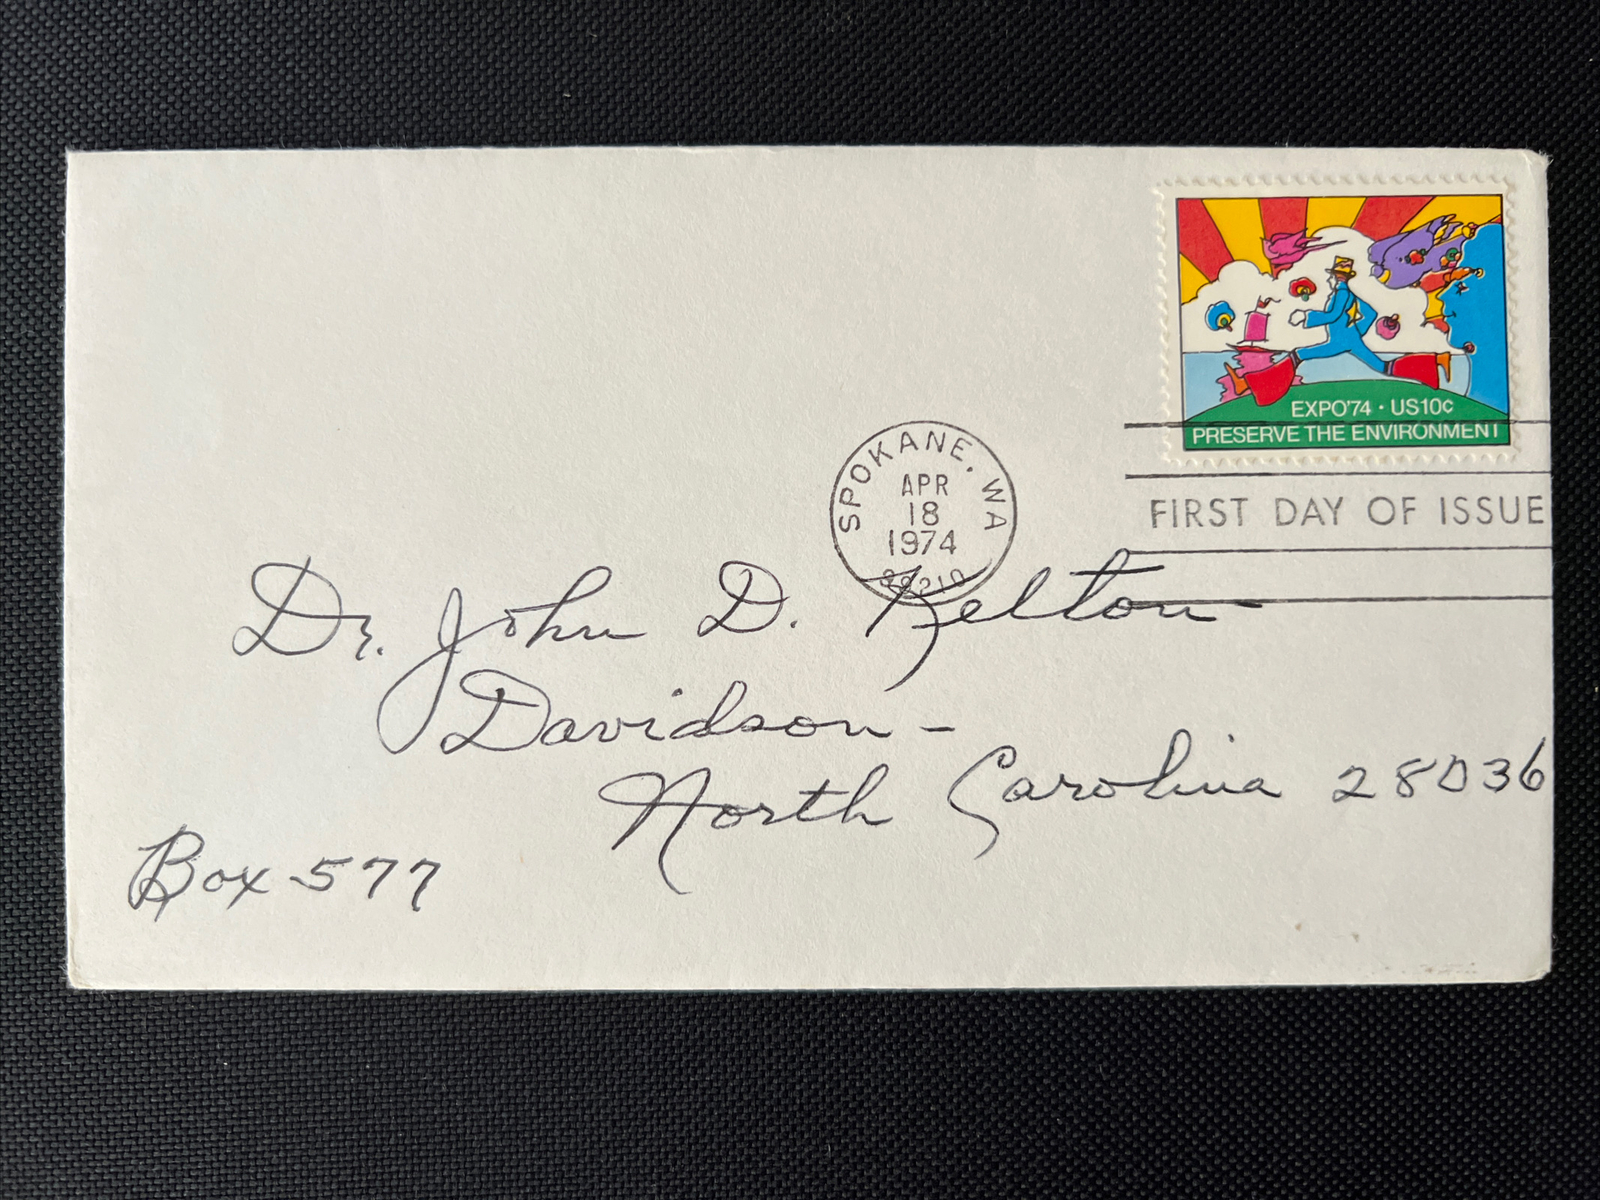 EXPO'74 · US10c
PRESERVE THE ENVIRONMENT
SPOKANE, WA
APR
18
1974
FIRST DAY OF ISSUE
Dr. John D. Kelton
Davidson -
North Carolina 28036
Box 577